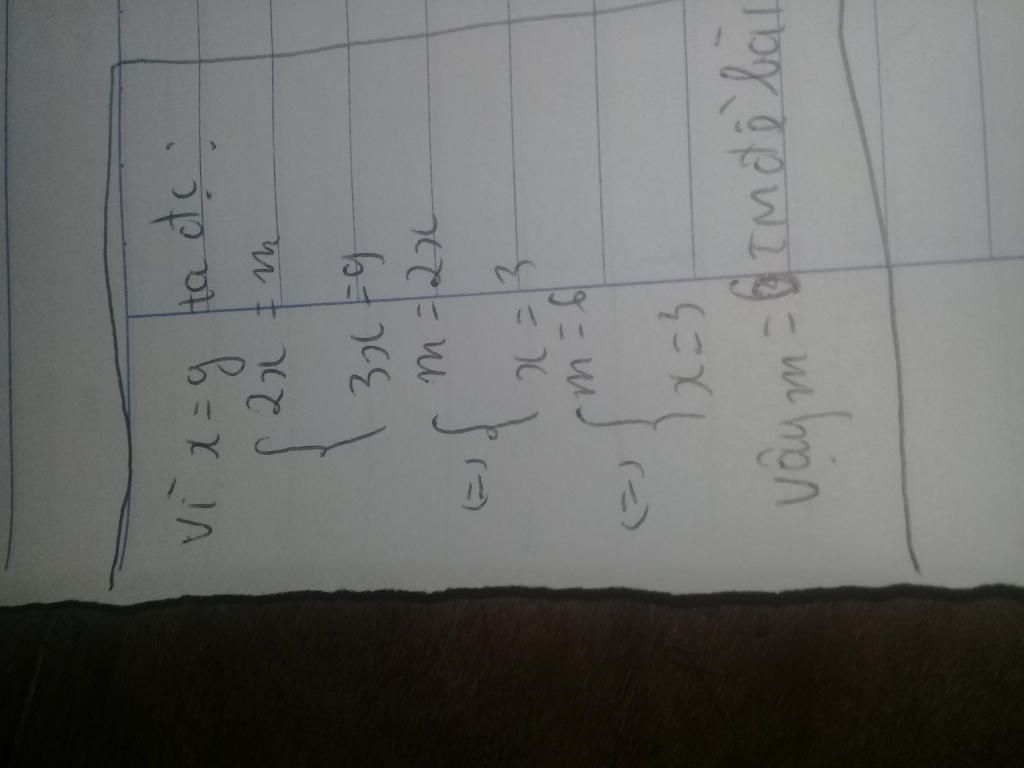 Vì x = y ta đc :
{ 2x = m
3x = 9
(=) { m = 2x
x = 3
(=) { m = 6
x = 3
Vậy m = 6 TM đề bài